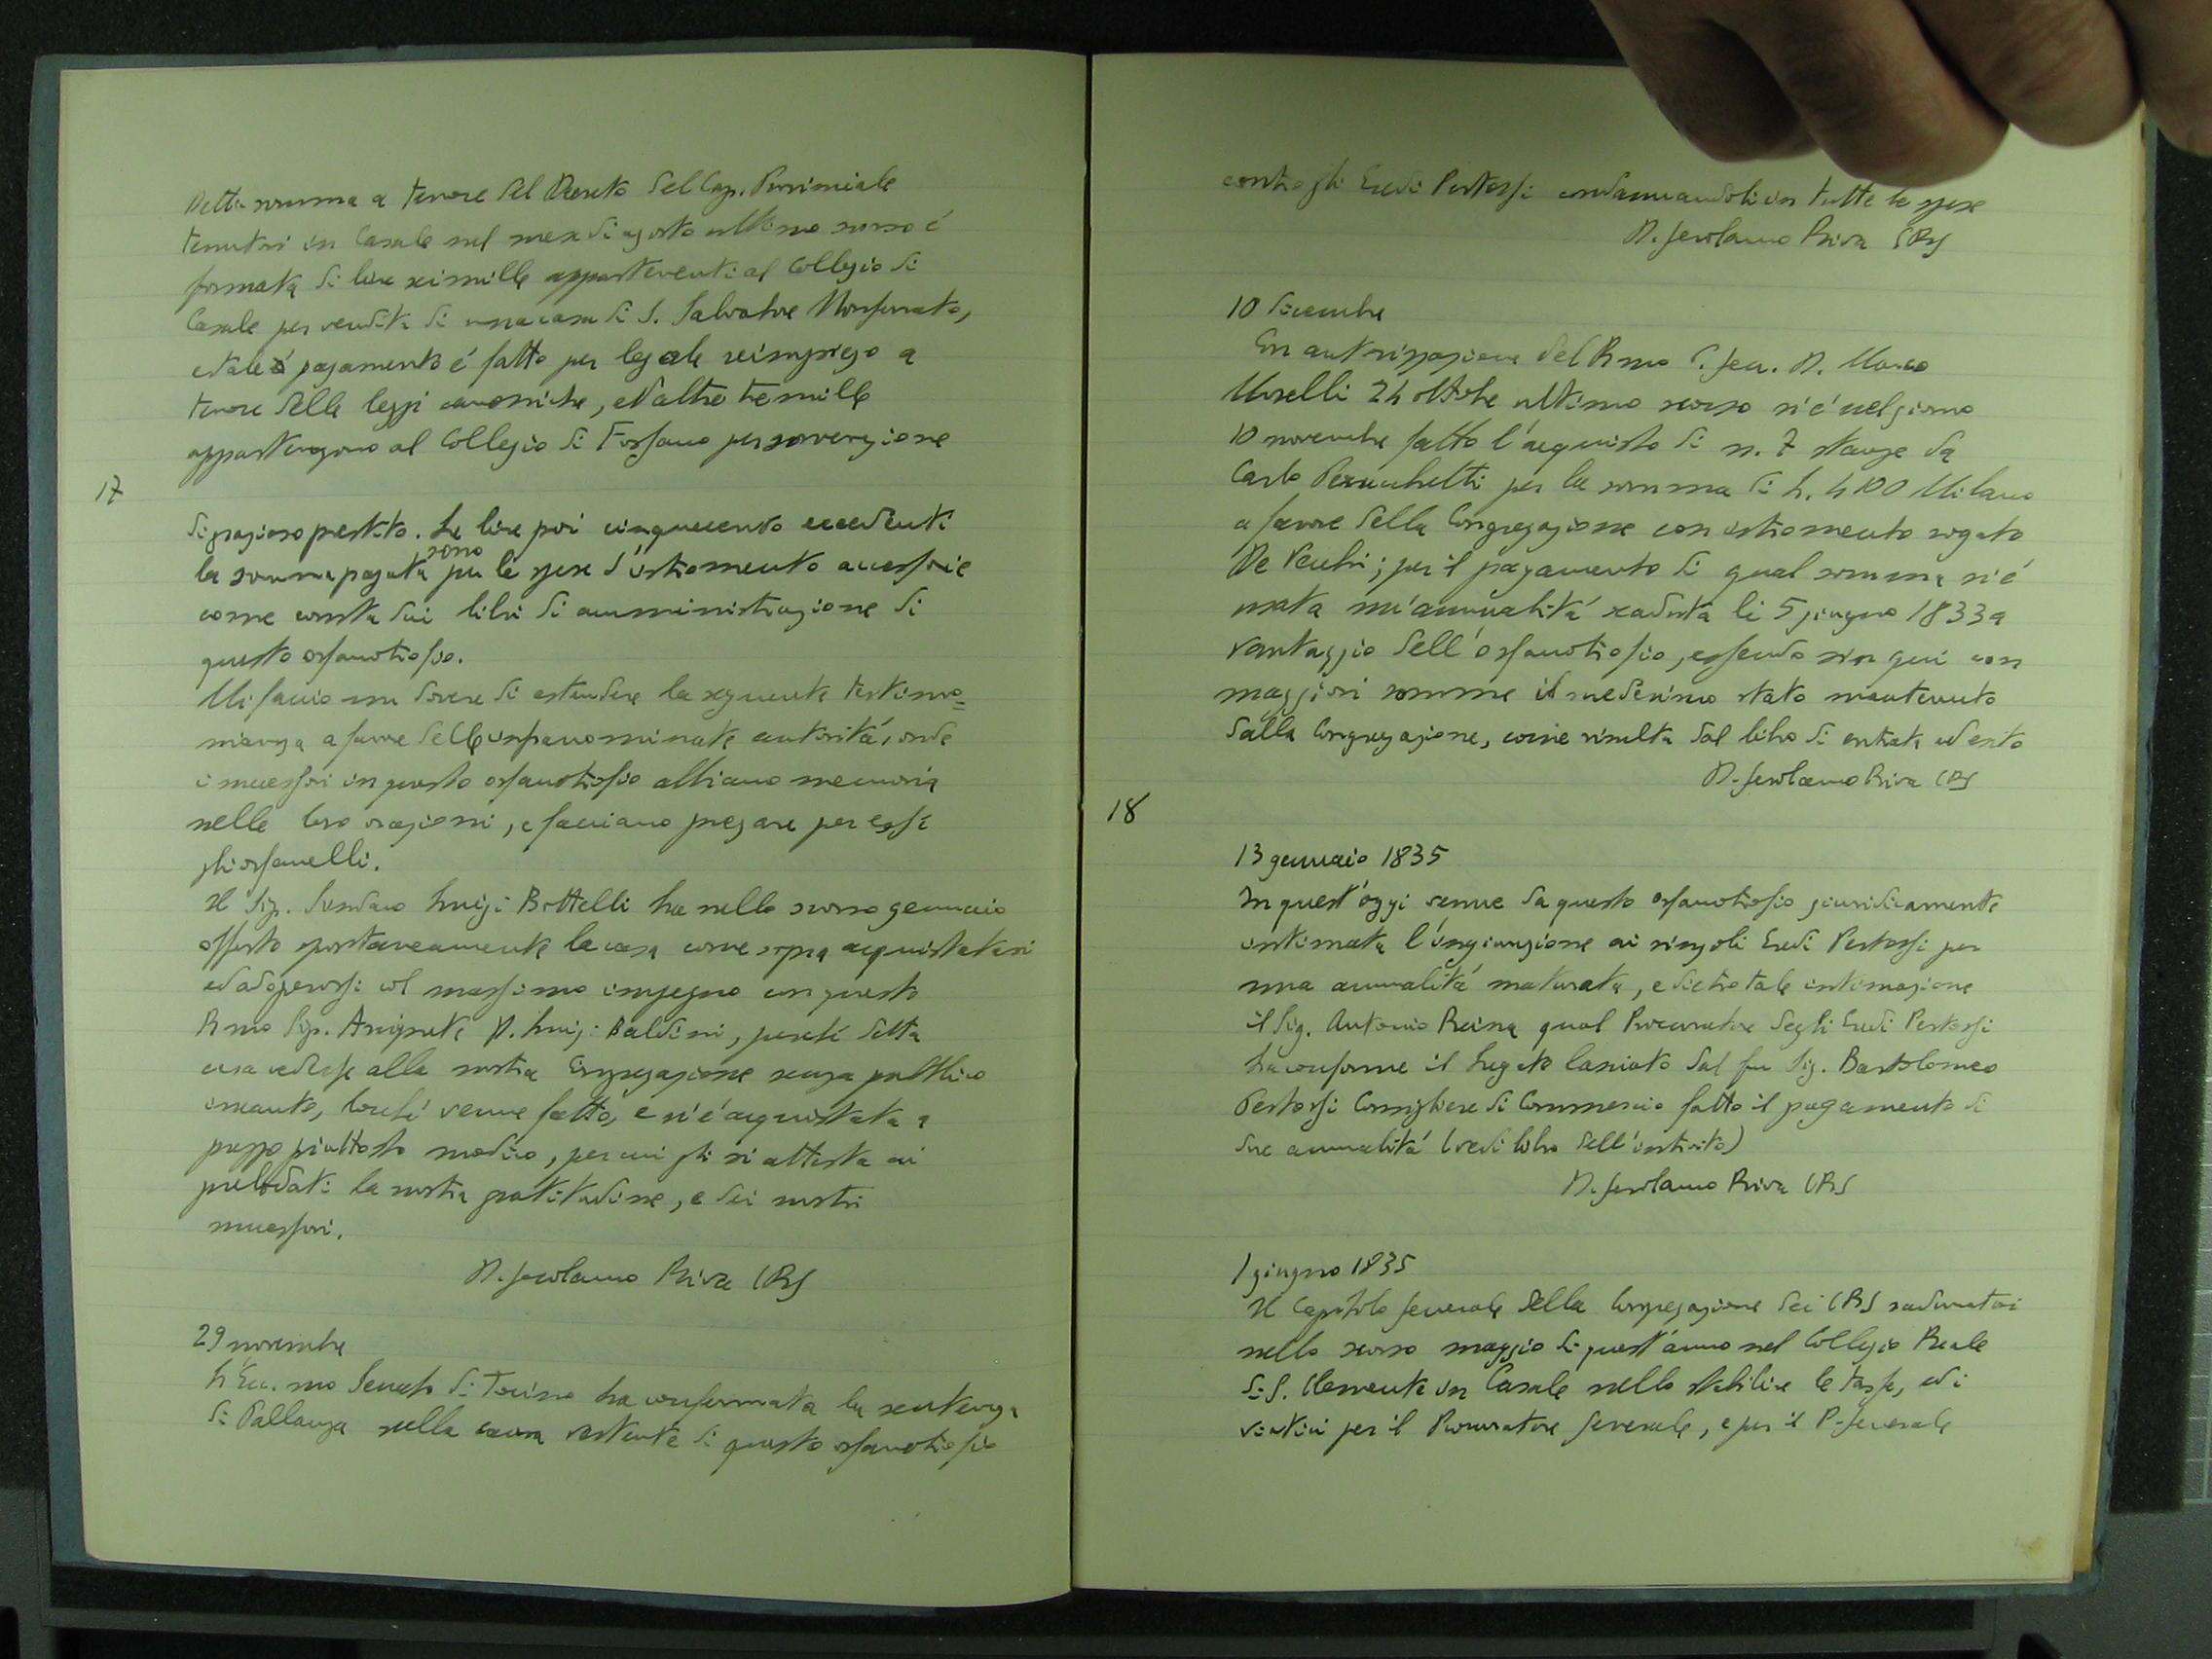 Detta somma a tenore del Decreto del Cap. Provinciale
tenutosi in Casale nel mese di agosto ultimo scorso é
formata di lire seimille appartenenti al Collegio di
Casale per vendita di una casa di S. Salvatore Monferrato,
e tale pagamento é fatto per legale reimpiego a
tenore delle leggi canoniche, ed altre tremille
appartengono al Collegio di Fossano per sovvenzione
17
di grazioso prestito. Le lire poi cinquecento eccedenti
la somma pagata sono per le spese d'istromento accessorie
come consta dai libri di amministrazione di
questo orfanotrofio.
Mi faccio un dovere di estendere la seguente testimo=
nianza a favore delle infranominate autorità, onde
i successori in questo orfanotrofio abbiano memoria
nelle loro orazioni, e facciano pregare per essi
gli orfanelli.
Il Sig. Sindaco Luigi Bottelli ha nello scorso gennaio
offerto spontaneamente la casa come sopra acquistatasi
ed adoperossi col massimo impegno con questo
Rmo Sig. Arciprete D. Luigi Baldini, perché detta
casa cedesse alla nostra Congregazione senza pubblico
incanto, locché venne fatto, e si é acquistata a
prezzo piuttosto modico, per cui gli si attesta ai
prelodati la nostra gratitudine, e dei nostri
successori.
D. Gerolamo Riva CRS
29 novembre
L'Ecc.mo Senato di Torino ha confermata la sentenza
di Pallanza nella causa vertente di questo orfanotrofio
contro gli Eredi Pertossi condannandoli in tutte le spese
D. Gerolamo Riva CRS
10 dicembre
Con autorizzazione del Rmo P. Gen. D. Marco
Morelli 24 ottobre ultimo scorso si é nel giorno
10 novembre fatto l'acquisto di n. 7 stanze da
Carlo Perucchetti per la somma di L. 4100 Milano
a favore della Congregazione con istromento rogato
De Vecchi; per il pagamento di qual somma si é
usata un'annualità scaduta li 5 giugno 1833 a
vantaggio dell'orfanotrofio, essendo sin qui con
maggiori somme il medesimo stato mantenuto
dalla Congregazione, come risulta dal libro di entrata ed esito
D. Gerolamo Riva CRS
18
13 gennaio 1835
In quest'oggi venne da questo orfanotrofio giuridicamente
intimata l'ingiunzione ai singoli Eredi Pertossi per
una annualità maturata, e dietro tale intimazione
il Sig. Antonio Reina qual Procuratore degli Eredi Pertossi
ha conforme il Legato lasciato dal fu Sig. Bartolomeo
Pertossi Consigliere di Commercio fatto il pagamento di
due annualità (vedi libro dell'introito)
D. Gerolamo Riva CRS
1 giugno 1835
Il Capitolo generale della Congregazione dei CRS radunatosi
nello scorso maggio di quest'anno nel Collegio Reale
di S. Clemente in Casale nello stabilire le tasse, ed i
viatici per il Procuratore generale, e per il P. Generale